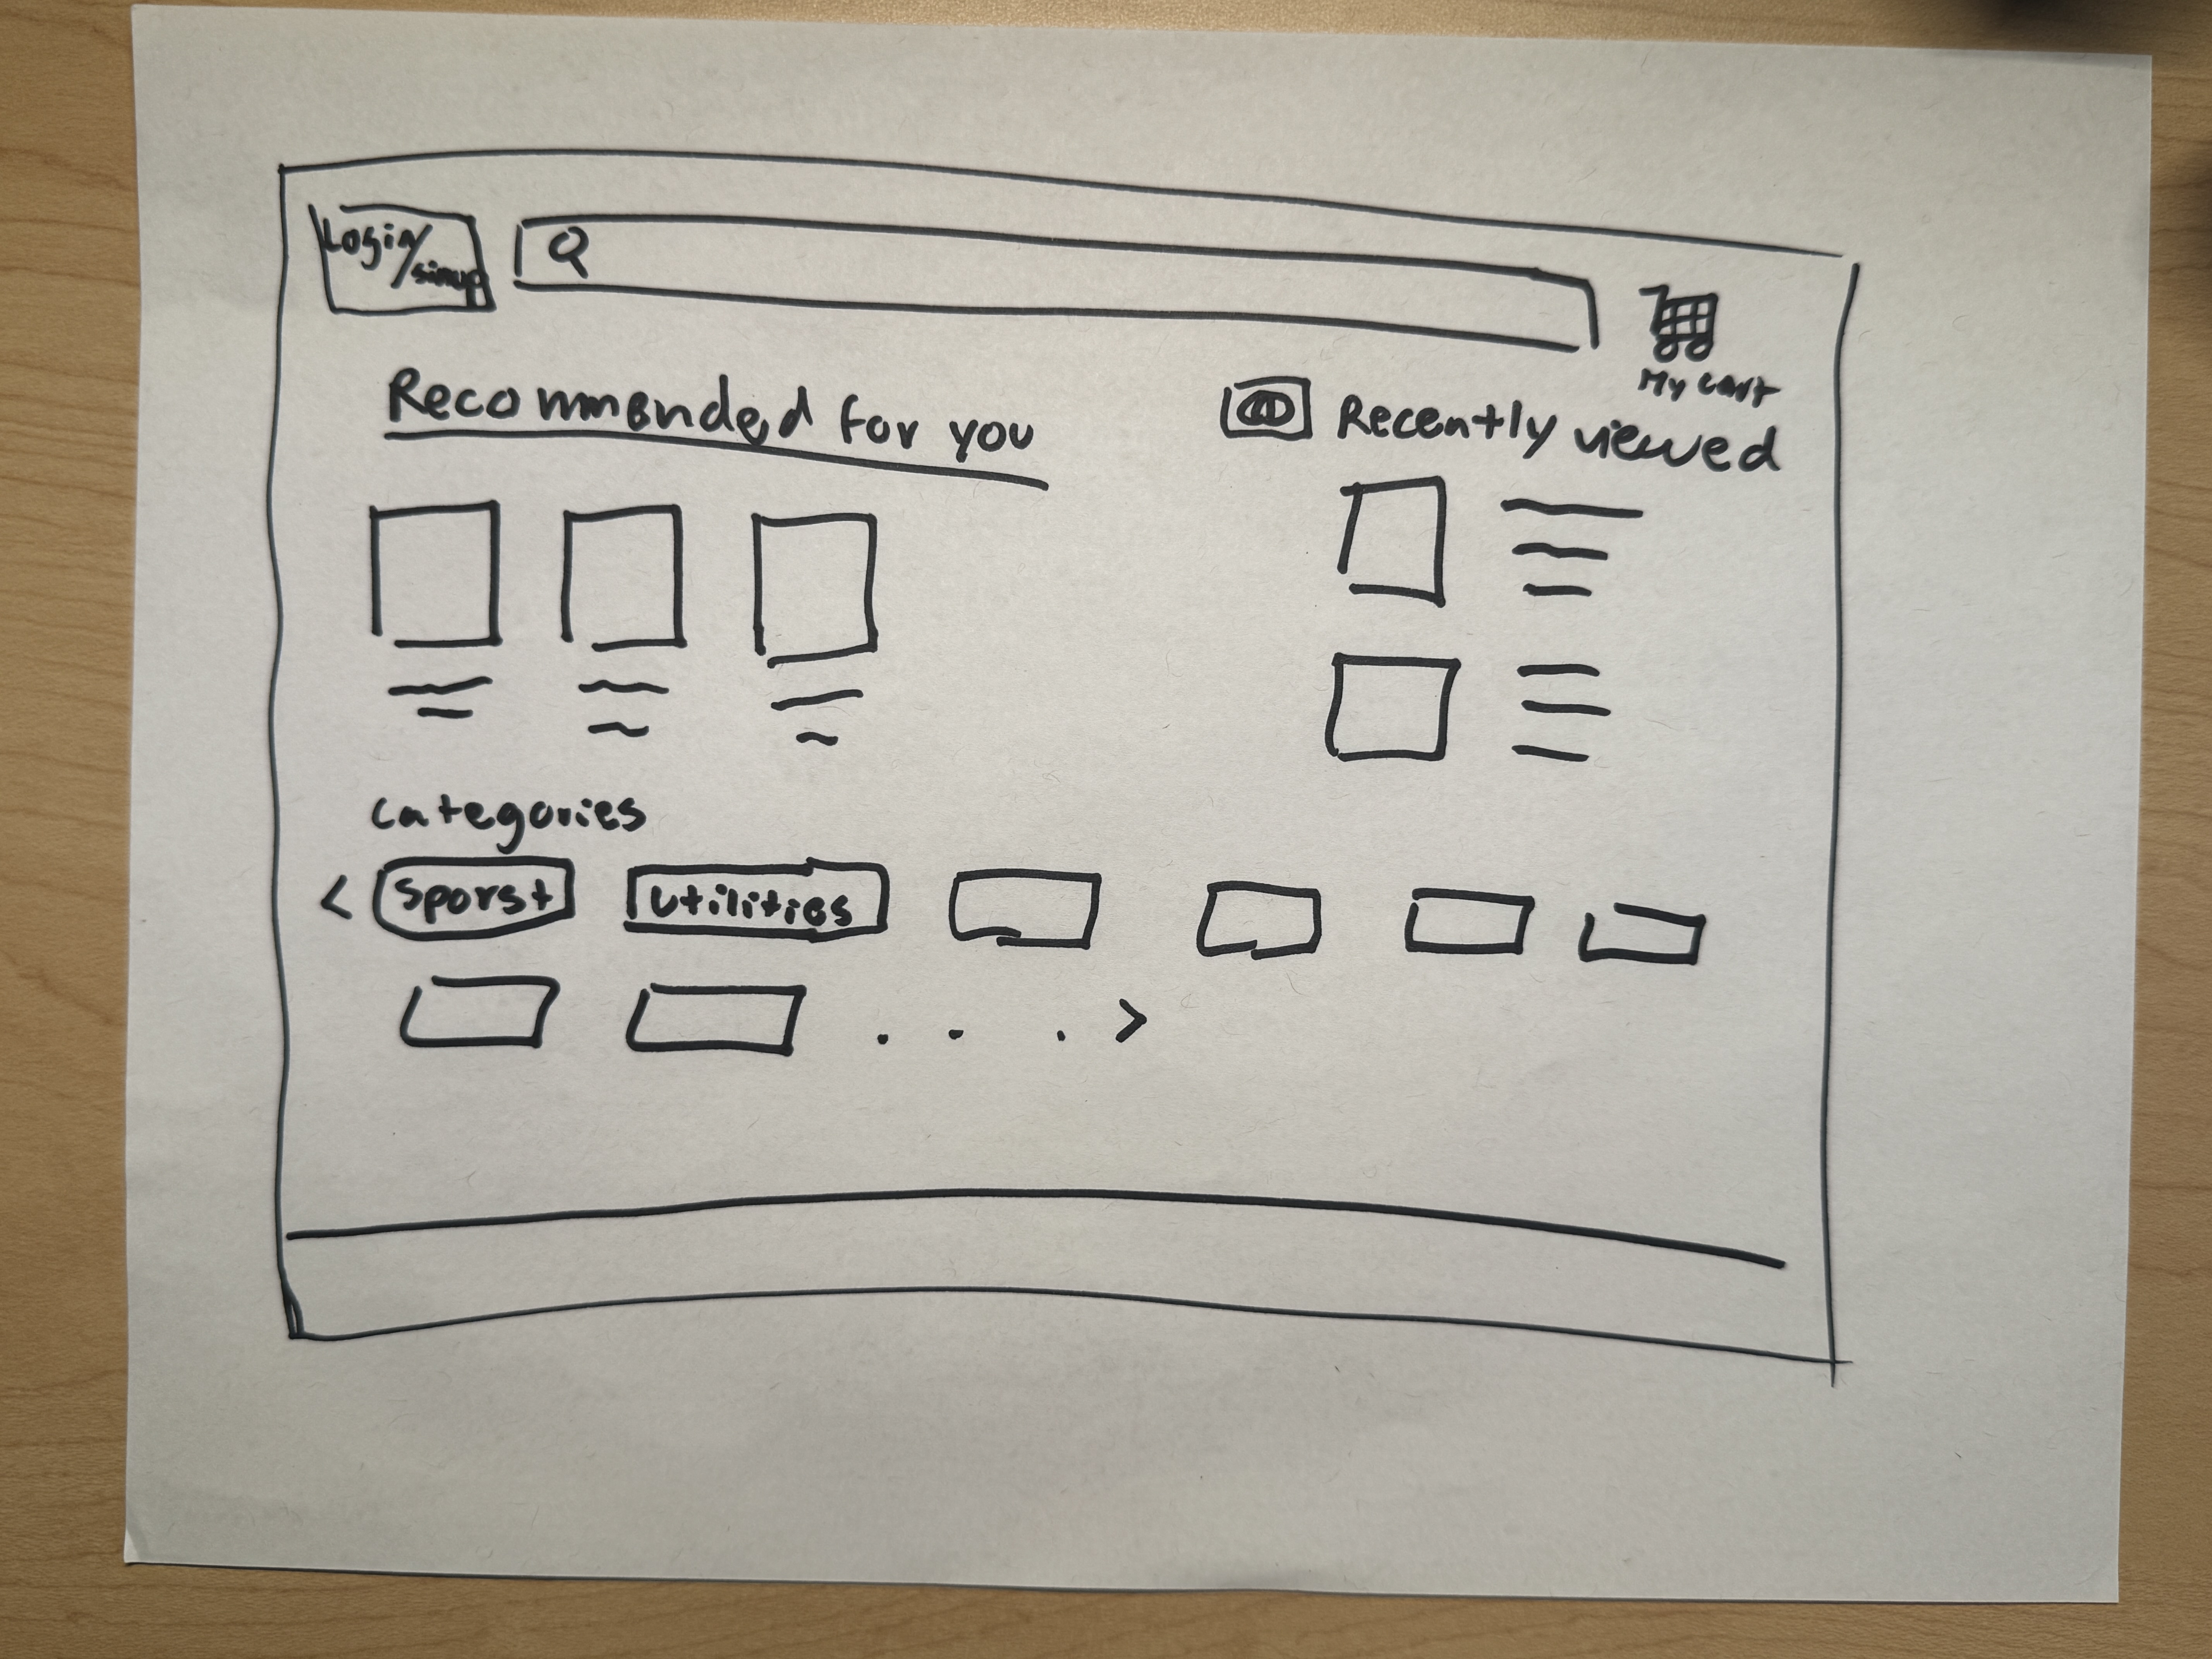 Login/
sinup
My cart
Recommended for you
Recently viewed
categories
< Sporst
Utilities
. . . >